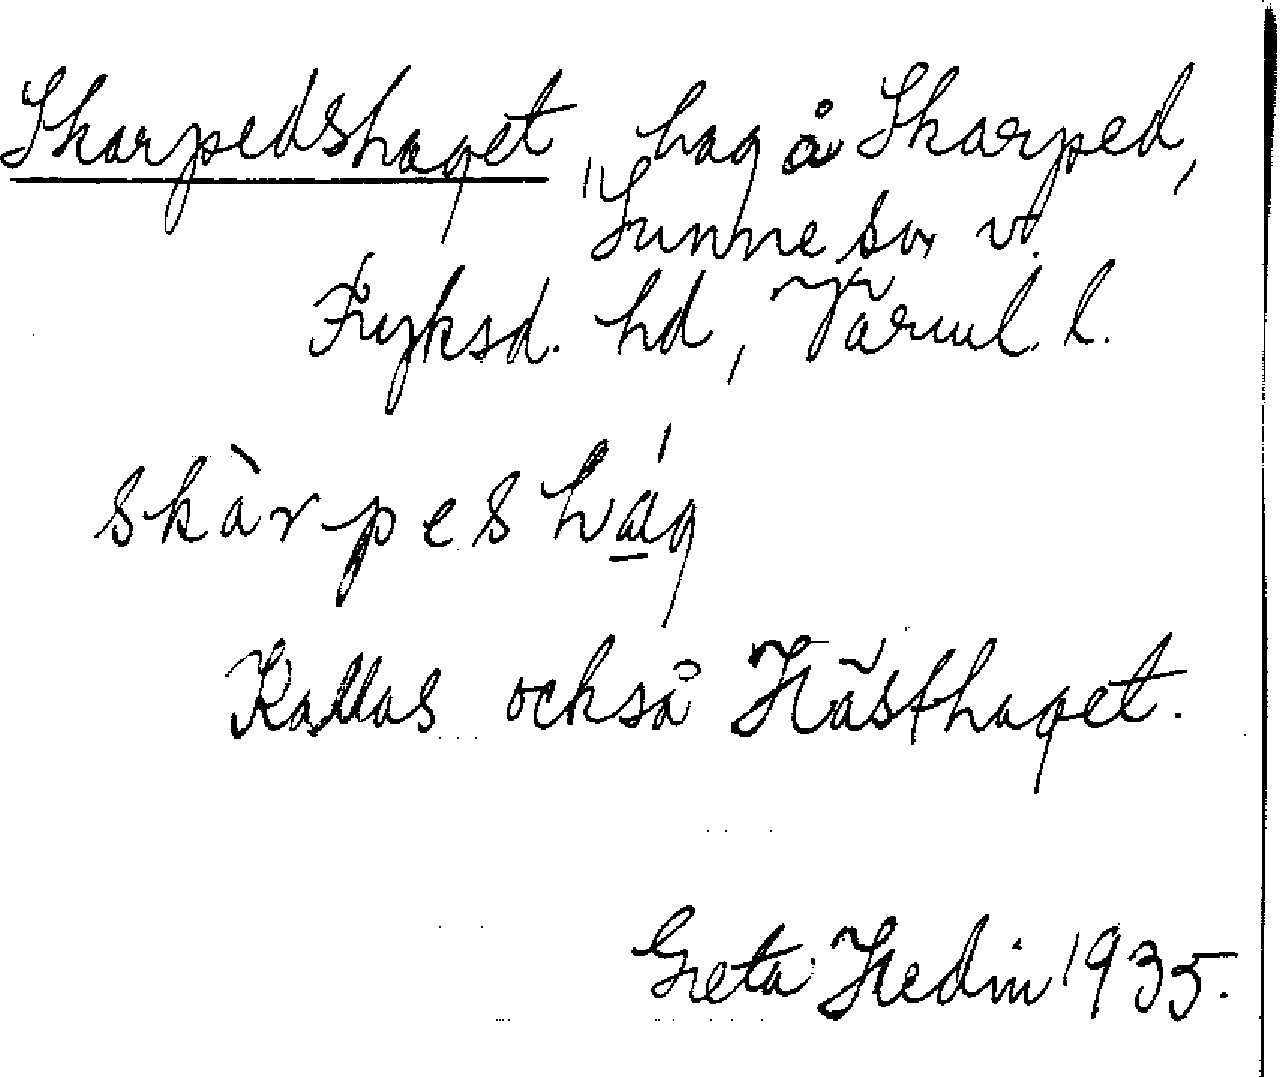 Skarpedshaget, hag å Skarped,
Sunne sn v.
Fryksd. hd, Värml. l.
skàrpeshág
Kallas också Hästhaget.
Greta Hedin 1935.